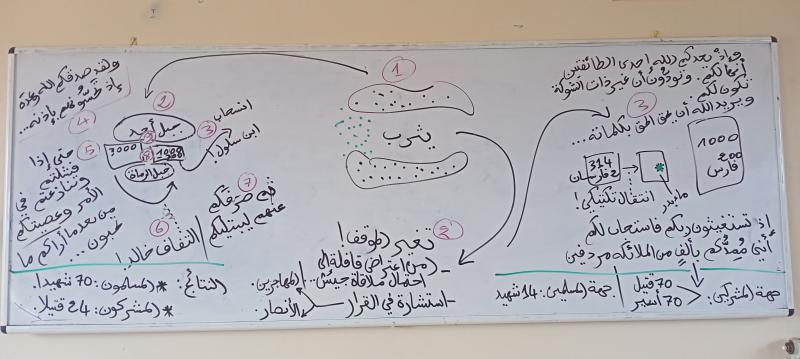 وإذ يعدكم الله إحدى الطائفتين
أنها لكم وتودون أن غير ذات الشوكة
تكون لكم
ويريد الله أن يحق الحق بكلماته...
3
1000
200
فارس
314
2 فارسان
انتقال تكتيكي!
ماء بدر
إذ تستغيثون ربكم فاستجاب لكم
أني ممدكم بألف من الملائكة مردفين
جهة المشركين:
70 قتيل
70 أسير
جهة المسلمين: 14 شهيد
1
يثرب
2
تغير الموقف!
- (من اعتراض قافلة إلى
احتمال ملاقاة جيش...
- استشارة في القرار
المهاجرين.
الأنصار.
ولقد صدقكم الله وعده
إذ تحسونهم بإذنه...
4
2
جبل أحد
3000
جبل الرماة
3
انسحاب
ابن سلول!
5
حتى إذا
فشلتم
وتنازعتم في
الأمر وعصيتم
من بعد ما أراكم ما
تحبون...
6
التفاف خالد!
7
ثم صرفكم
عنهم ليبتليكم
النتائج:
* المسلمون: 70 شهيدا.
* المشركون: 24 قتيلا.